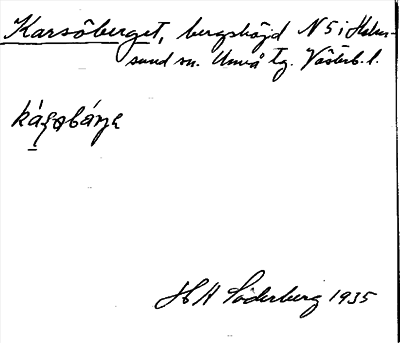 Karsöberget, bergshöjd N 5 i Holm-
sund sn. Umeå tg. Västerb. l.
H H Söderberg 1935